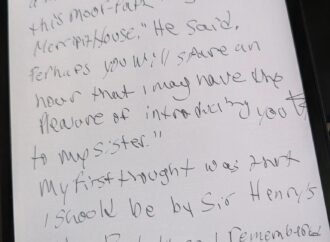 this moor-path
Merripit House." He said.
Perhaps you will spare an
hour that I may have the
Pleasure of introducing you
to my sister."
My first thought was that
I should be by Sir Henry's
I remembered